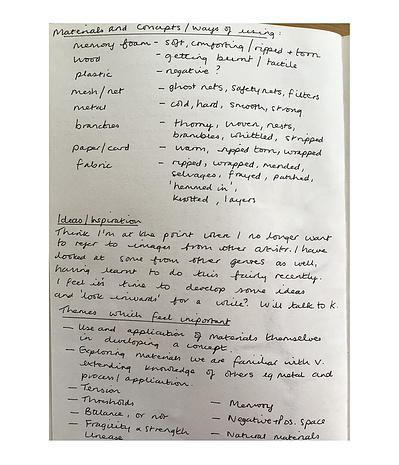 Materials and Concepts / Ways of using:
memory foam - soft, comforting / ripped + torn
wood - getting burnt / tactile
plastic - negative?
mesh/net - ghost nets, safety nets, filters
metal - cold, hard, smooth, strong
branches - thorny, woven, nests,
brambles, whittled, stripped
paper/card - warm, ripped torn, wrapped
fabric - ripped, wrapped, mended,
selvages, frayed, patched,
'hemmed in',
knotted, layers
Ideas/Inspiration
Think I'm at the point when I no longer want
to refer to images from other artists. I have
looked at some from other genres as well,
having learnt to do this fairly recently.
I feel it's time to develop some ideas
and 'look inwards' for a while? Will talk to K.
Themes which feel important
- Use and application of materials themselves
in developing a concept
- Exploring materials we are familiar with v.
extending knowledge of others eg metal and
process/application.
- Tension
- Thresholds - Memory
- Balance, or not - Negative + Pos. Space
- Fragility & Strength - Natural materials
Unease